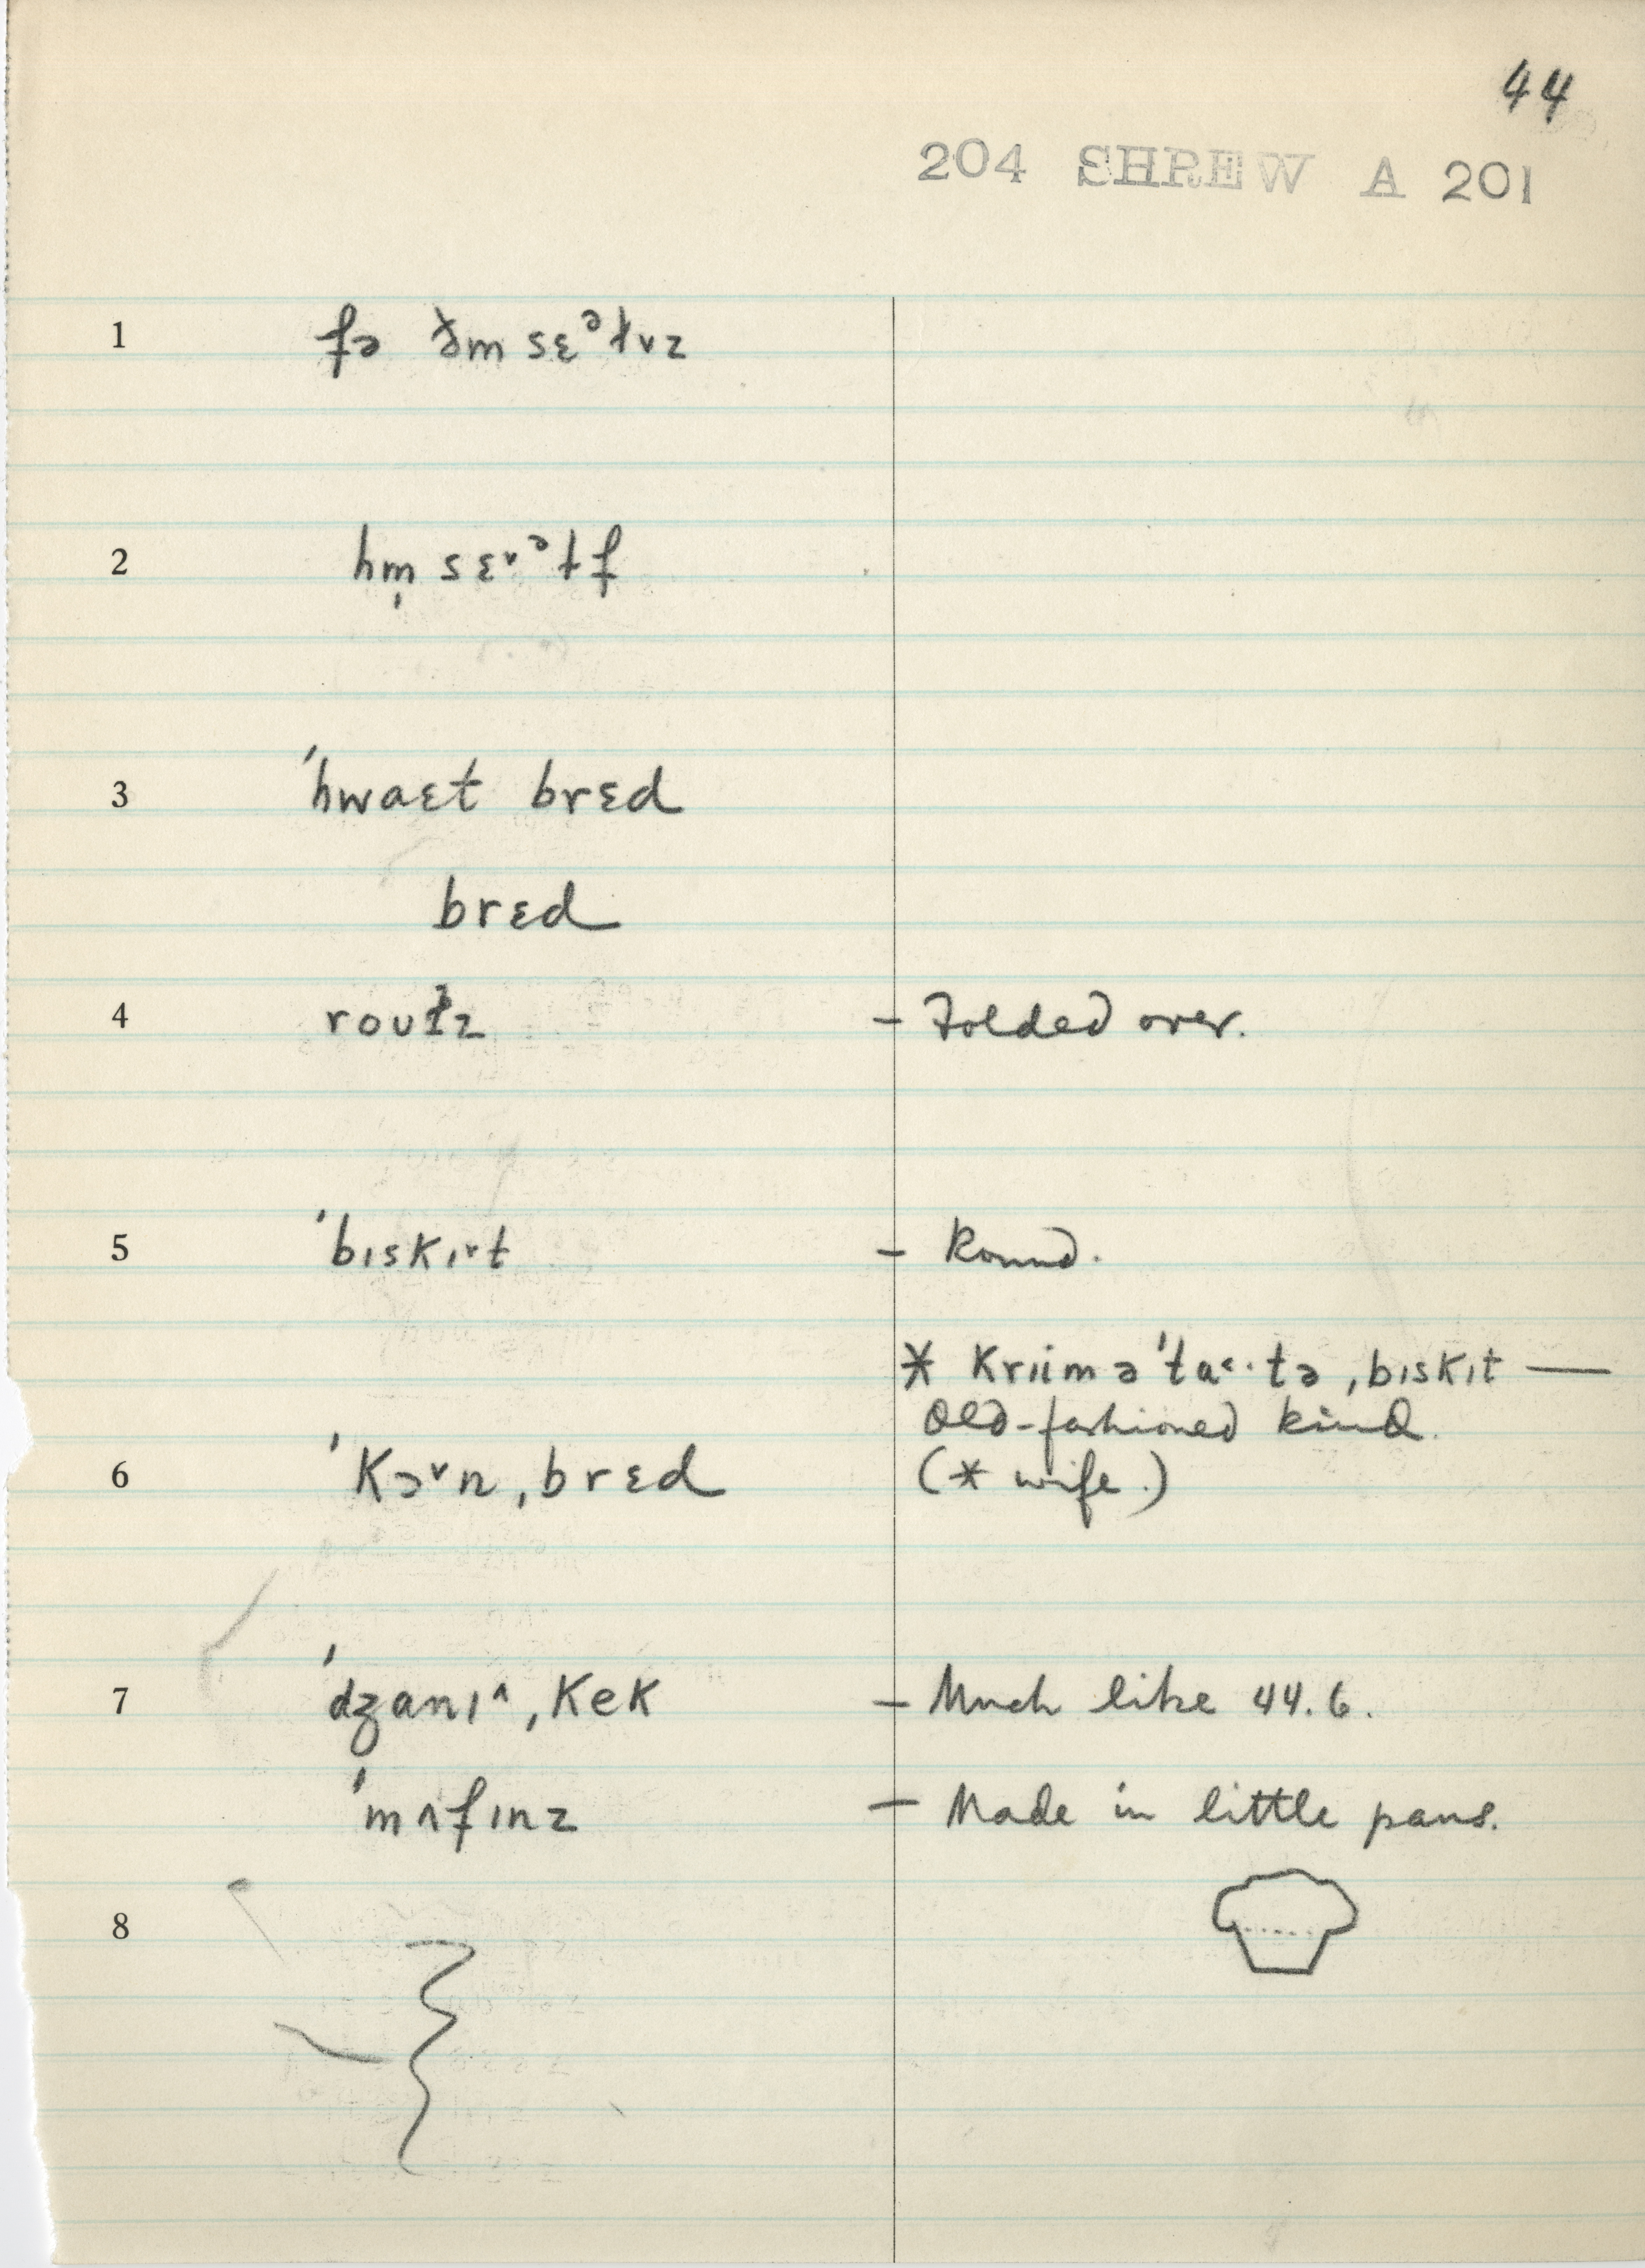 44
204 SHREW A 201
1 fə ðm sɛᵊɫvz
2 hm̩ sɛ˅ᵊɫf
3 ˈhwaɛt brɛd
brɛd
4 roʊɫz – Folded over.
5 ˈbɪskɪ˅t – Round.
* kriɪm ə ˈtɑ˂·tə ˌbɪskɪt —
Old-fashioned kind.
6 ˈkɔ˅n ˌbrɛd (* wife.)
7 ˈdʒanɪ˄ ˌkek – Much like 44.6.
ˈmʌfɪnz – Made in little pans.
8